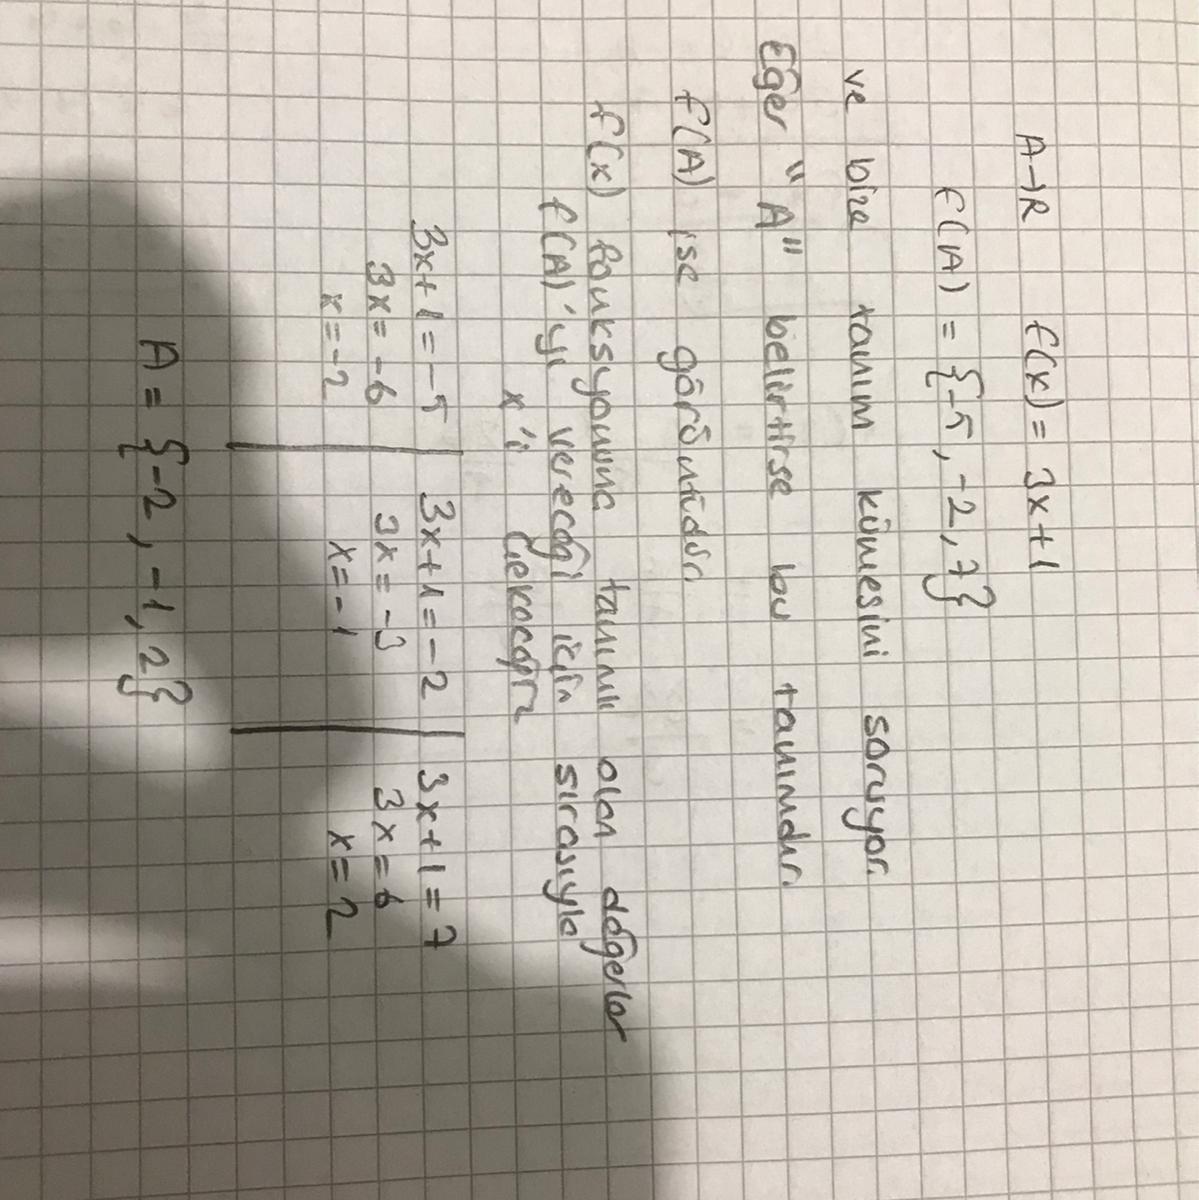 A→R f(x) = 3x+1
f(A) = {-5, -2, 7}
ve bize tanım kümesini soruyor.
Eğer "A" belirtirse bu tanımdır.
f(A) ise görüntüdür.
f(x) fonksyonuna tanımlı olan değerler
f(A)'yı vereceği için sırasıyla
x'i çekeceğiz
3x+1=-5 3x+1=-2 3x+1=7
3x=-6 3x=-3 3x=6
x=-2 x=-1 x=2
A = {-2, -1, 2}